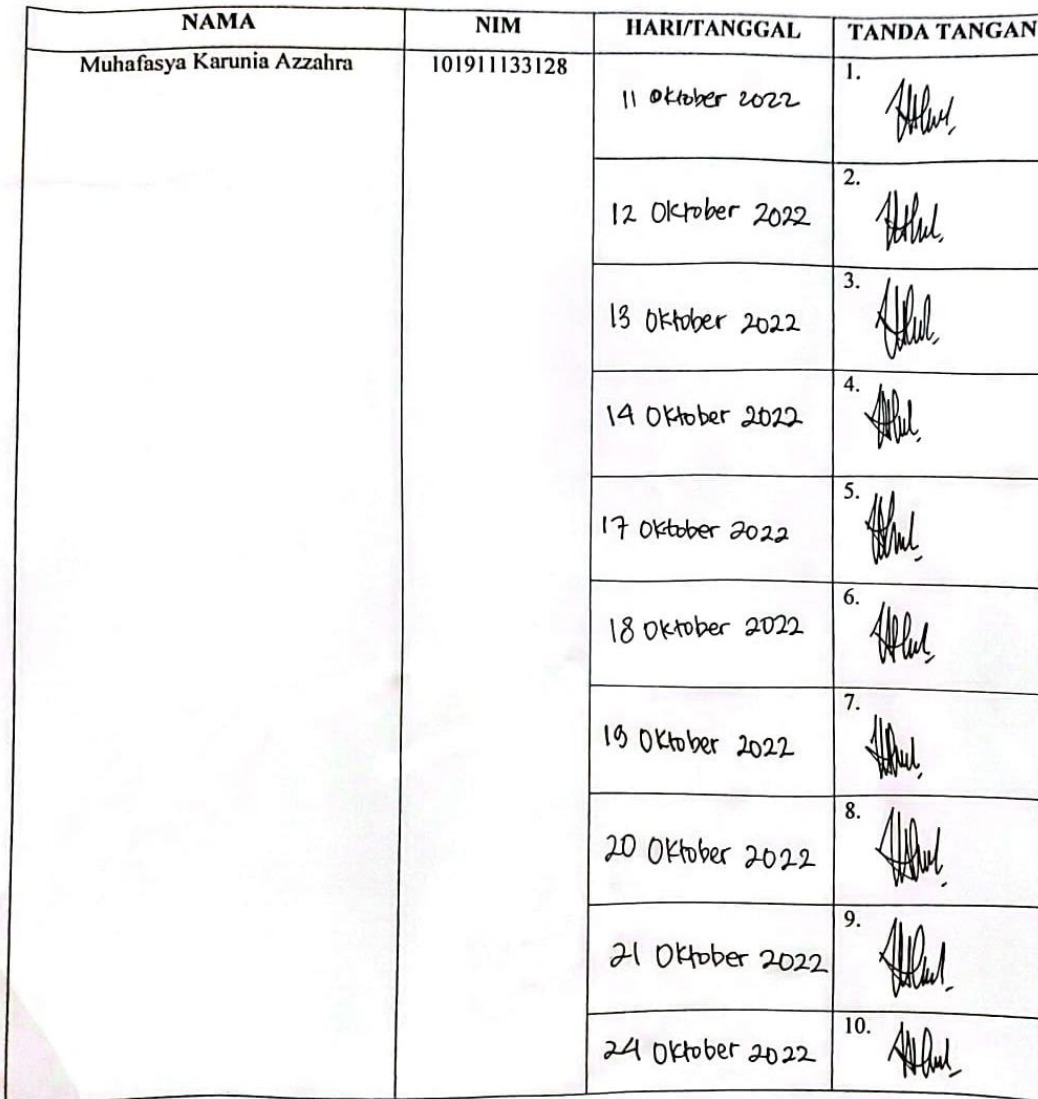 NAMA NIM HARI/TANGGAL TANDA TANGAN
Muhafasya Karunia Azzahra 101911133128
11 Oktober 2022 1.
12 Oktober 2022 2.
13 Oktober 2022 3.
14 Oktober 2022 4.
17 Oktober 2022 5.
18 Oktober 2022 6.
19 Oktober 2022 7.
20 Oktober 2022 8.
21 Oktober 2022 9.
24 Oktober 2022 10.